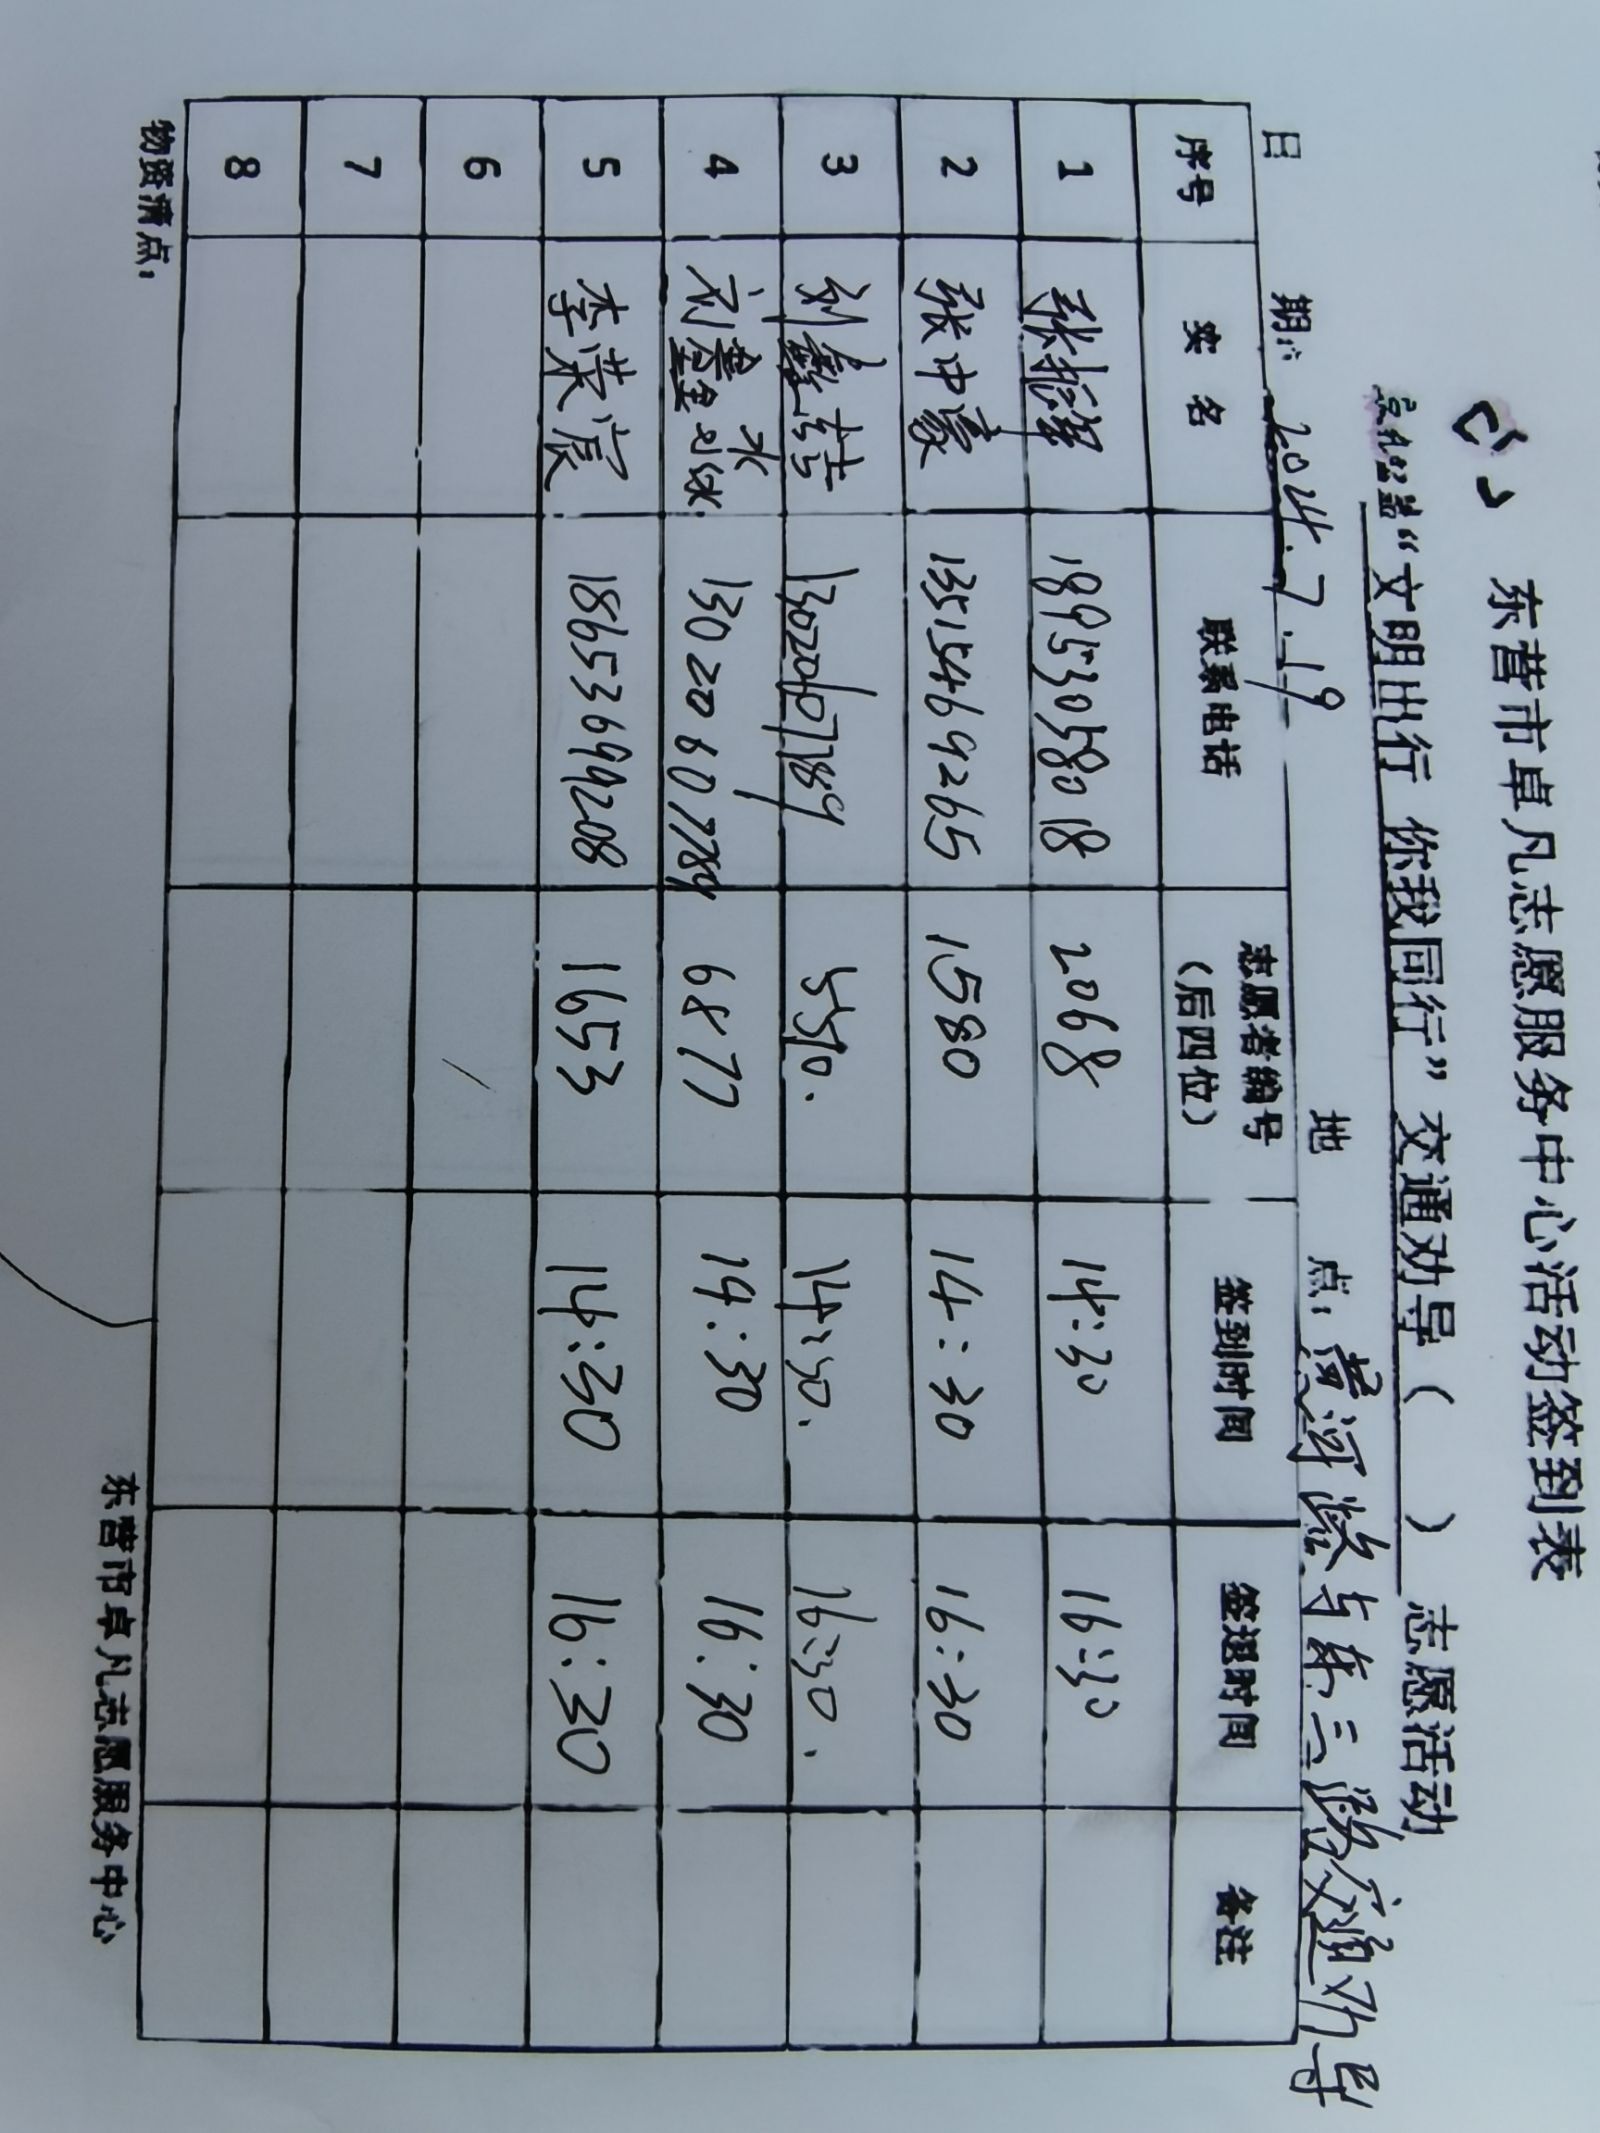 东营市卓凡志愿服务中心活动签到表
“文明出行 你我同行”交通劝导（ ） 志愿活动
日 期： 2024.7.19 地 点：黄河路与东三路交通劝导
序号 实 名 联系电话 志愿者编号（后四位） 签到时间 签退时间 备注
1 张 18953058018 2068 14:30 16:30
2 张中豪 13515469265 1580 14:30 16:30
3 刘鑫喆 13020607789 5510. 14:30. 16:30.
4 刘鑫 13020607789 6877 14:30 16:30
5 李荣宸 18653699208 1653 14:30 16:30
6
7
8
物资清点：
东营市卓凡志愿服务中心